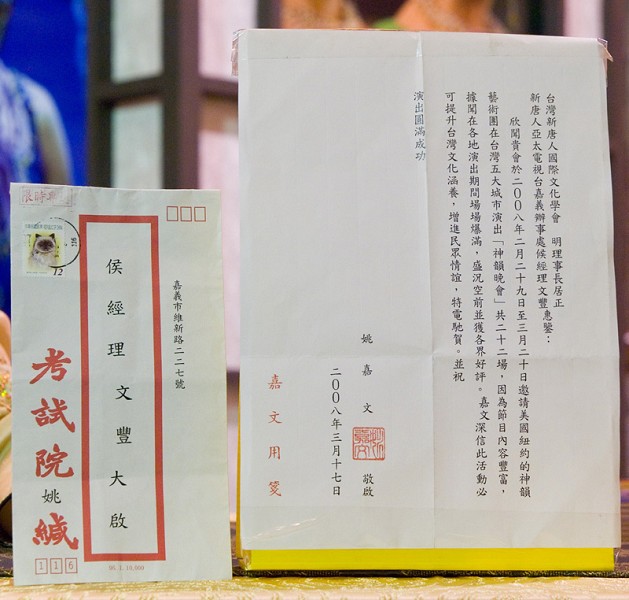 限時專送
嘉義市維新路二二七號
侯經理文豐大啟
考試院姚緘
116
96. 1. 10,000
台灣新唐人國際文化學會　明理事長居正
新唐人亞太電視台嘉義辦事處侯經理文豐惠鑒：
欣聞貴會於二００八年二月二十九日至三月二十日邀請美國紐約的神韻
藝術團在台灣五大城市演出「神韻晚會」共二十二場，因為節目內容豐富，
據聞在各地演出期間場場爆滿，盛況空前並獲各界好評。嘉文深信此活動必
可提升台灣文化涵養，增進民眾情誼，特電馳賀。並祝
演出圓滿成功
姚嘉文　敬啟
二００八年三月十七日
嘉文用箋